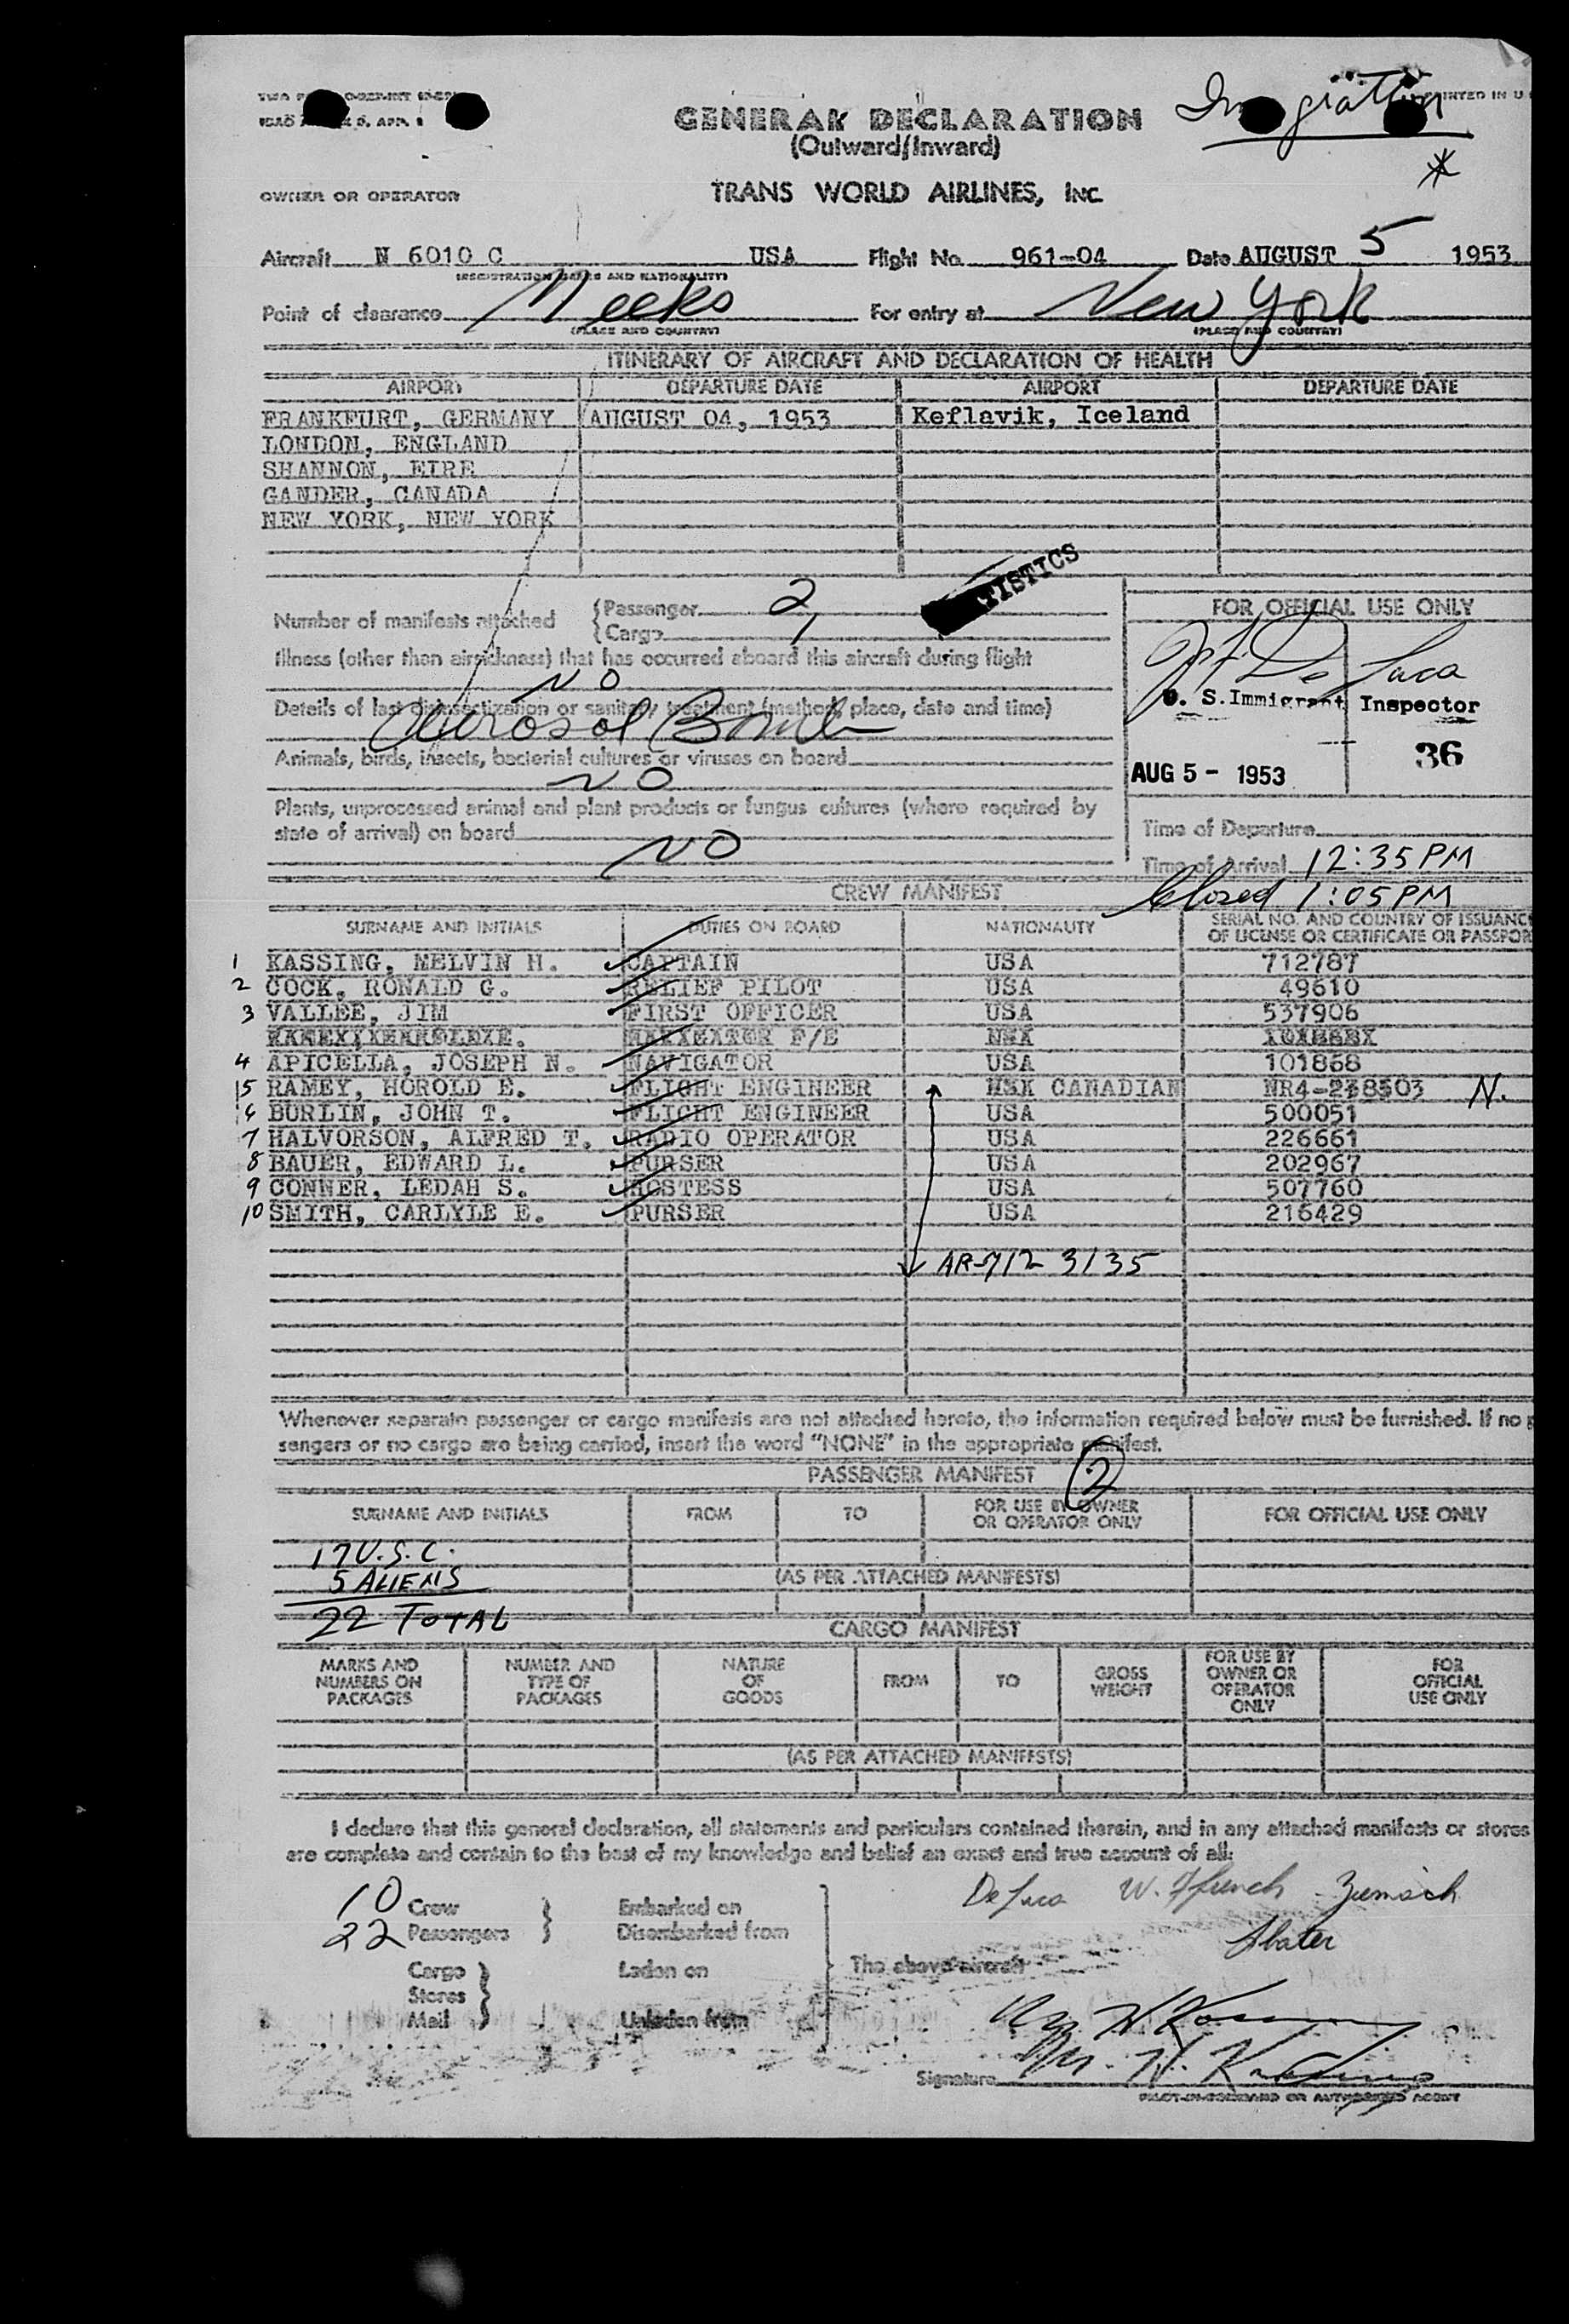 GENERAL DECLARATION
(Outward/Inward)
OWNER OR OPERATOR TRANS WORLD AIRLINES, INC.
Aircraft N 6010 C USA Flight No. 961-04 Date AUGUST 5 1953
(REGISTRATION MARKS AND NATIONALITY)
Point of clearance Meeks For entry at New York
(PLACE AND COUNTRY) (PLACE AND COUNTRY)
ITINERARY OF AIRCRAFT AND DECLARATION OF HEALTH
AIRPORT DEPARTURE DATE AIRPORT DEPARTURE DATE
FRANKFURT, GERMANY AUGUST 04, 1953 Keflavik, Iceland
LONDON, ENGLAND
SHANNON, EIRE
GANDER, CANADA
NEW YORK, NEW YORK
TISTICS
Number of manifests attached
Passenger 2
Cargo 1
Illness (other than airsickness) that has occurred aboard this aircraft during flight
NO
Details of last disinsectization or sanitary treatment (method, place, date and time)
Aerosol Bomb
Animals, birds, insects, bacterial cultures or viruses on board
NO
Plants, unprocessed animal and plant products or fungus cultures (where required by
state of arrival) on board
NO
FOR OFFICIAL USE ONLY
De Luca
U. S. Immigrant Inspector
36
AUG 5 - 1953
Time of Departure
Time of Arrival 12:35 PM
Closed 1:05 PM
CREW MANIFEST
SURNAME AND INITIALS DUTIES ON BOARD NATIONALITY SERIAL NO. AND COUNTRY OF ISSUANC
OF LICENSE OR CERTIFICATE OR PASSPOR
1 KASSING, MELVIN H. CAPTAIN USA 712787
2 COCK, RONALD G. RELIEF PILOT USA 49610
3 VALLEE, JIM FIRST OFFICER USA 537906
F/E
4 APICELLA, JOSEPH N. NAVIGATOR USA 101868
5 RAMEY, HOROLD E. FLIGHT ENGINEER CANADIAN N.
6 BURLIN, JOHN T. FLIGHT ENGINEER USA 500051
7 HALVORSON, ALFRED T. RADIO OPERATOR USA 226661
8 BAUER, EDWARD L. PURSER USA 202967
9 CONNER, LEDAH S. HOSTESS USA 507760
10 SMITH, CARLYLE E. PURSER USA 216429
AR-712 3135
Whenever separate passenger or cargo manifests are not attached hereto, the information required below must be furnished. If no p
sengers or no cargo are being carried, insert the word "NONE" in the appropriate manifest.
PASSENGER MANIFEST 2
SURNAME AND INITIALS FROM TO FOR USE BY OWNER OR OPERATOR ONLY FOR OFFICIAL USE ONLY
17 U.S.C.
5 ALIENS (AS PER ATTACHED MANIFESTS)
22 TOTAL
CARGO MANIFEST
MARKS AND NUMBERS ON PACKAGES NUMBER AND TYPE OF PACKAGES NATURE OF GOODS FROM TO GROSS WEIGHT FOR USE BY OWNER OR OPERATOR ONLY FOR OFFICIAL USE ONLY
(AS PER ATTACHED MANIFESTS)
I declare that this general declaration, all statements and particulars contained therein, and in any attached manifests or stores
are complete and contain to the best of my knowledge and belief an exact and true account of all:
De Luca W. Ffrench
10 Crew Embarked on
22 Passengers Disembarked from
Cargo Laden on The above aircraft
Stores
Mail Unladen from
Signature M. H. Kassing
PILOT-IN-COMMAND OR AUTHORIZED AGENT